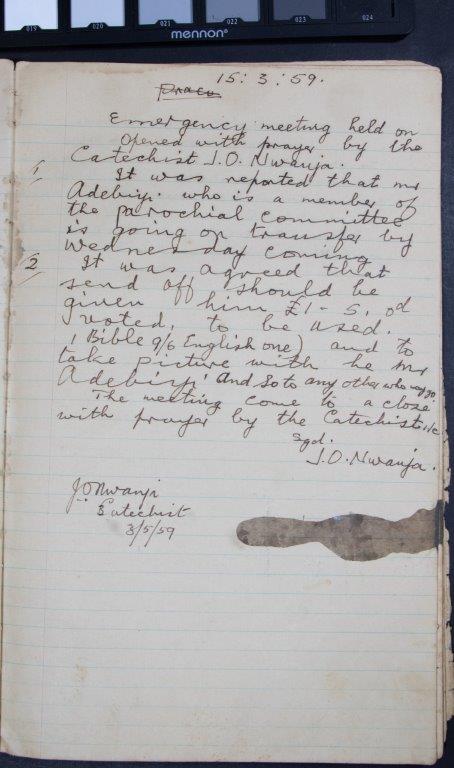 019 020 021 022 023 024
mennon
15: 3: 59.
Emergency meeting held on
Opened with prayer by the
Catechist J.O. Nwanja.
1 It was reported that mr
Adebiyi. who is a member of
the parochial committee
is going on transfer by
Wednesday coming
2 It was agreed that
send off should be
given him £1 - 5, od
voted, to be used.
1 Bible 9/6 English one) and to
take picture with he mr
Adebiyi' and so to any other who may go
The meeting come to a close
with prayer by the Catechist i/c
sgd.
J.O. Nwanja.
J.O Nwanja
Catechist
3/5/59